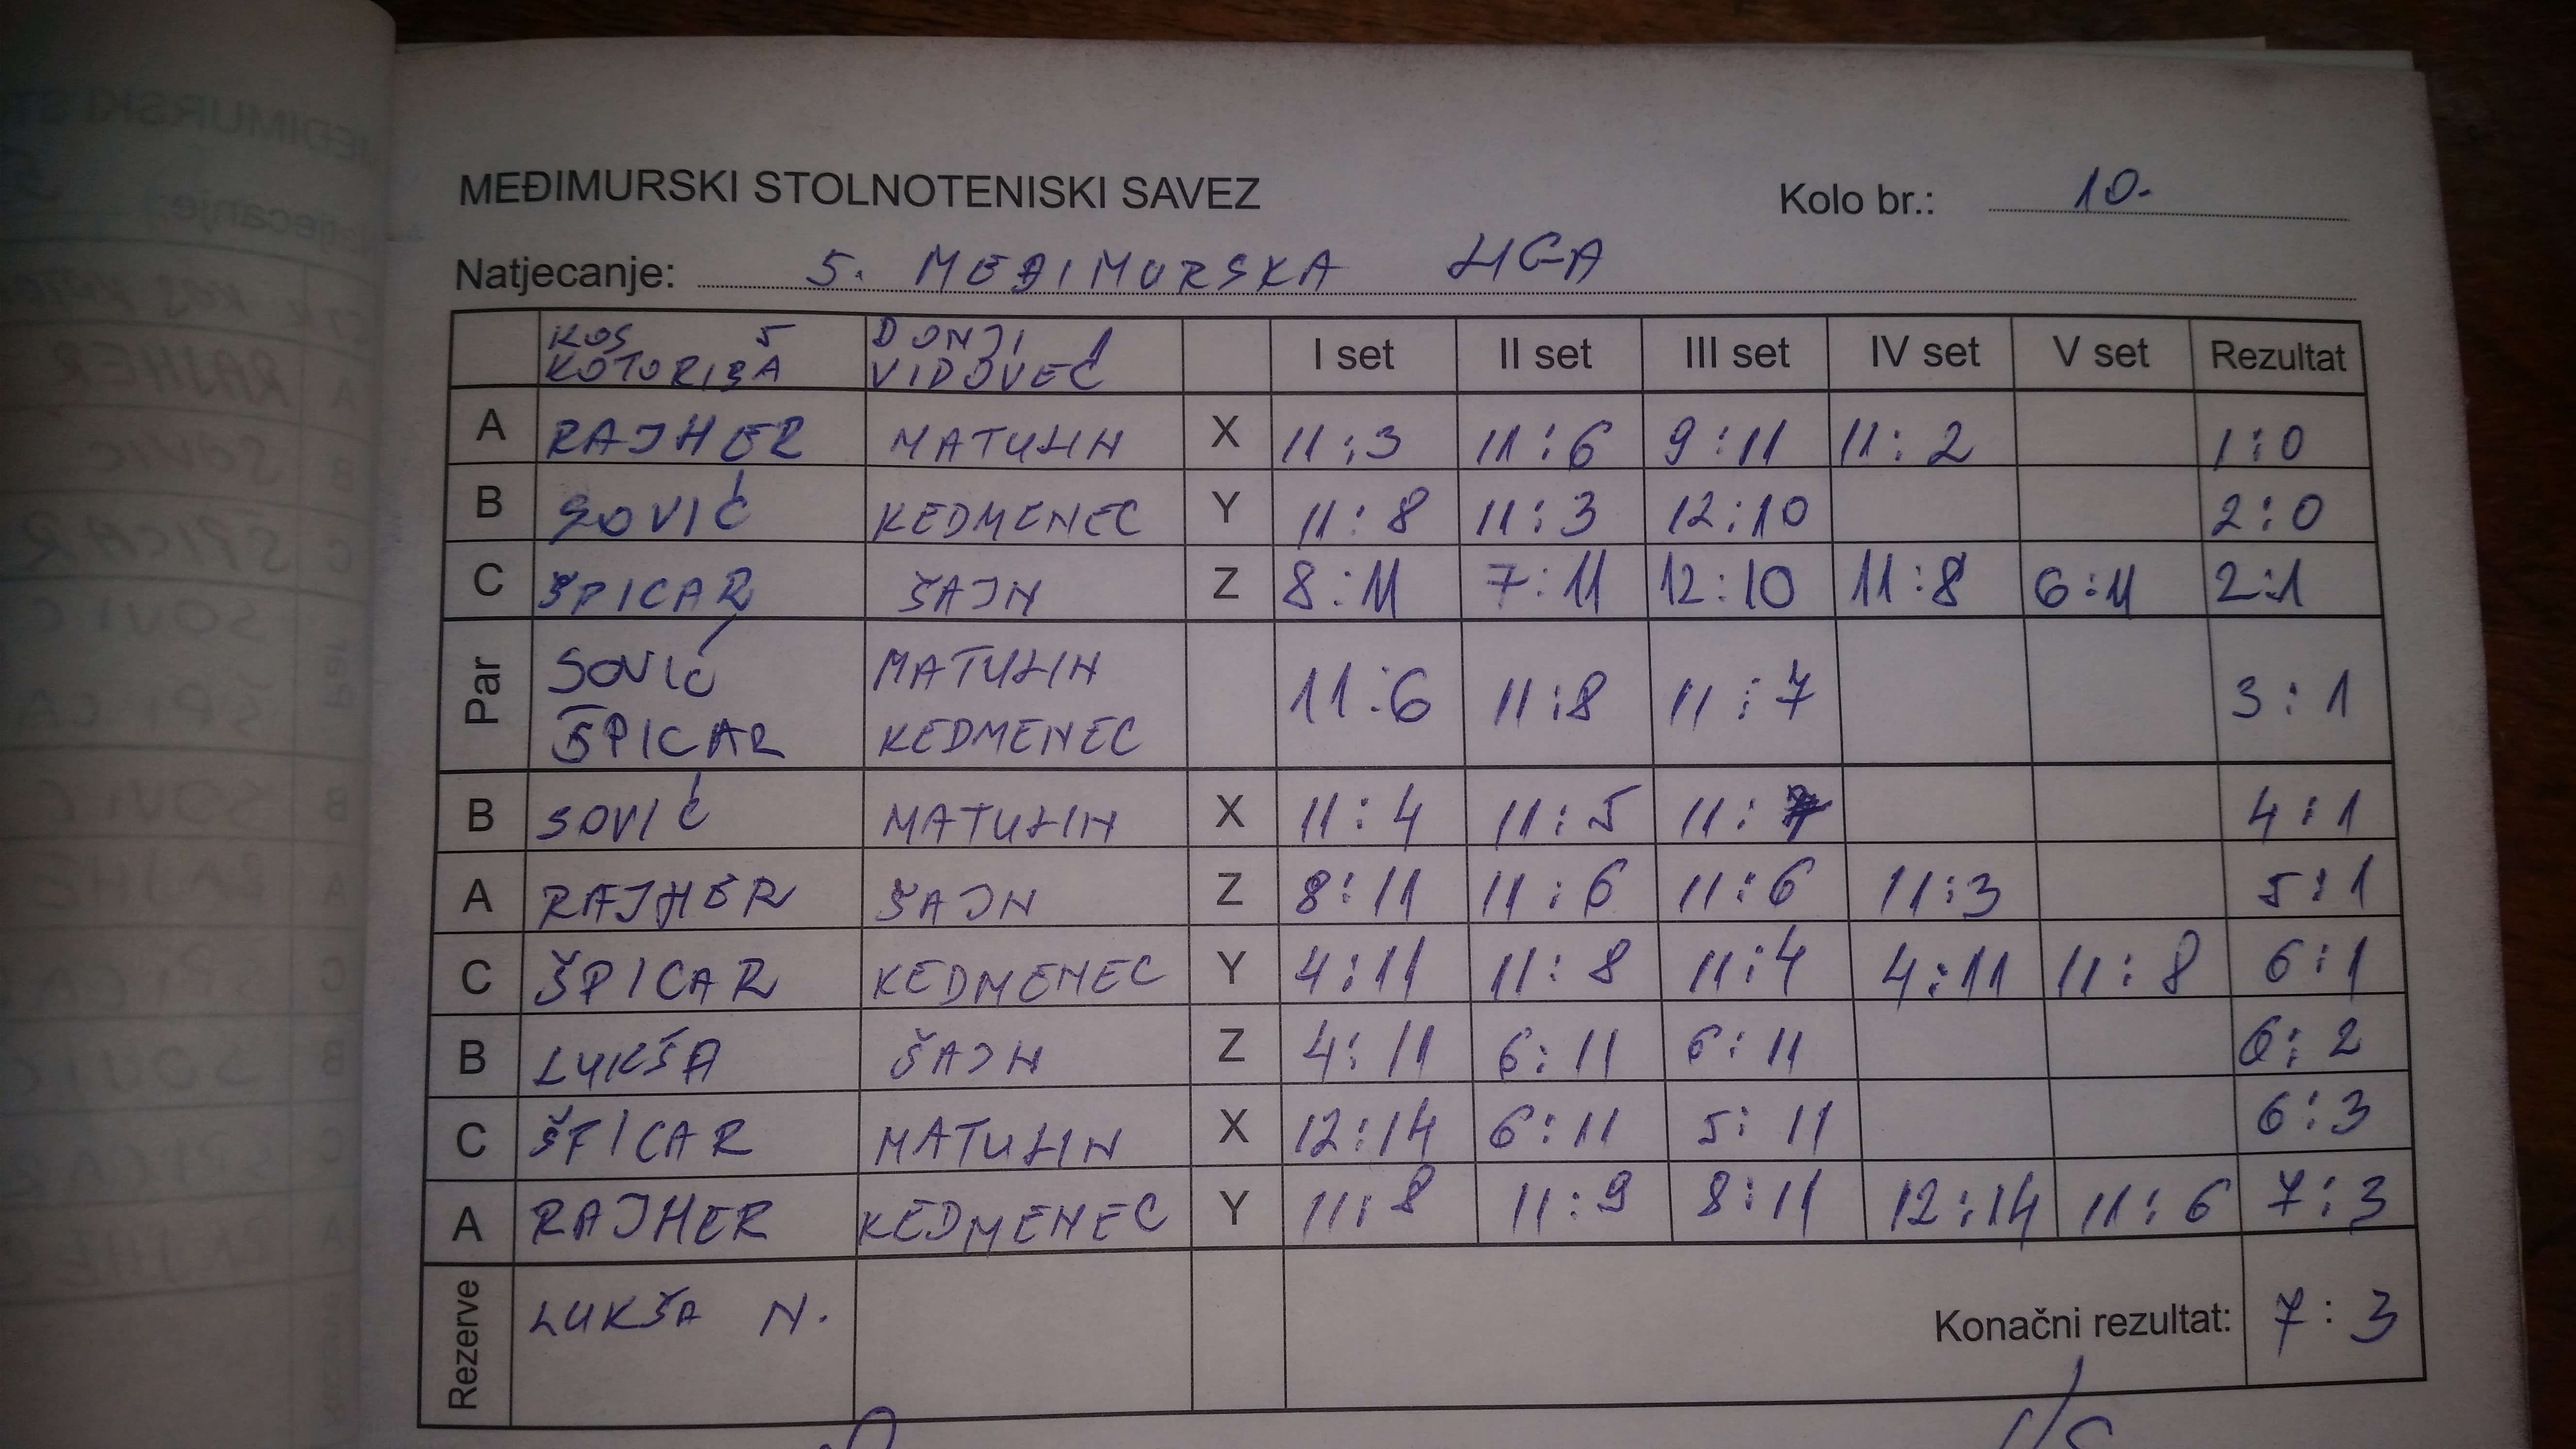 MEĐIMURSKI STOLNOTENISKI SAVEZ Kolo br.: 10.
Natjecanje: 5. MEĐIMURSKA LIGA
KOS 5 KOTORIBA DONJI 1 VIDOVEC I set II set III set IV set V set Rezultat
A RAJHER MATULIN X 11:3 11:6 9:11 11:2 1:0
B SOVIĆ KEDMENEC Y 11:8 11:3 12:10 2:0
C ŠPICAR ŠAJN Z 8:11 7:11 12:10 11:8 6:11 2:1
Par SOVIĆ ŠPICAR MATULIN KEDMENEC 11:6 11:8 11:7 3:1
B SOVIĆ MATULIN X 11:4 11:5 11: 4:1
A RAJHER ŠAJN Z 8:11 11:6 11:6 11:3 5:1
C ŠPICAR KEDMENEC Y 4:11 11:8 11:4 4:11 11:8 6:1
B LUKŠA ŠAJN Z 4:11 6:11 6:11 6:2
C ŠPICAR MATULIN X 12:14 6:11 5:11 6:3
A RAJHER KEDMENEC Y 11:8 11:9 8:11 12:14 11:6 7:3
Rezerve LUKŠA N. Konačni rezultat: 7:3